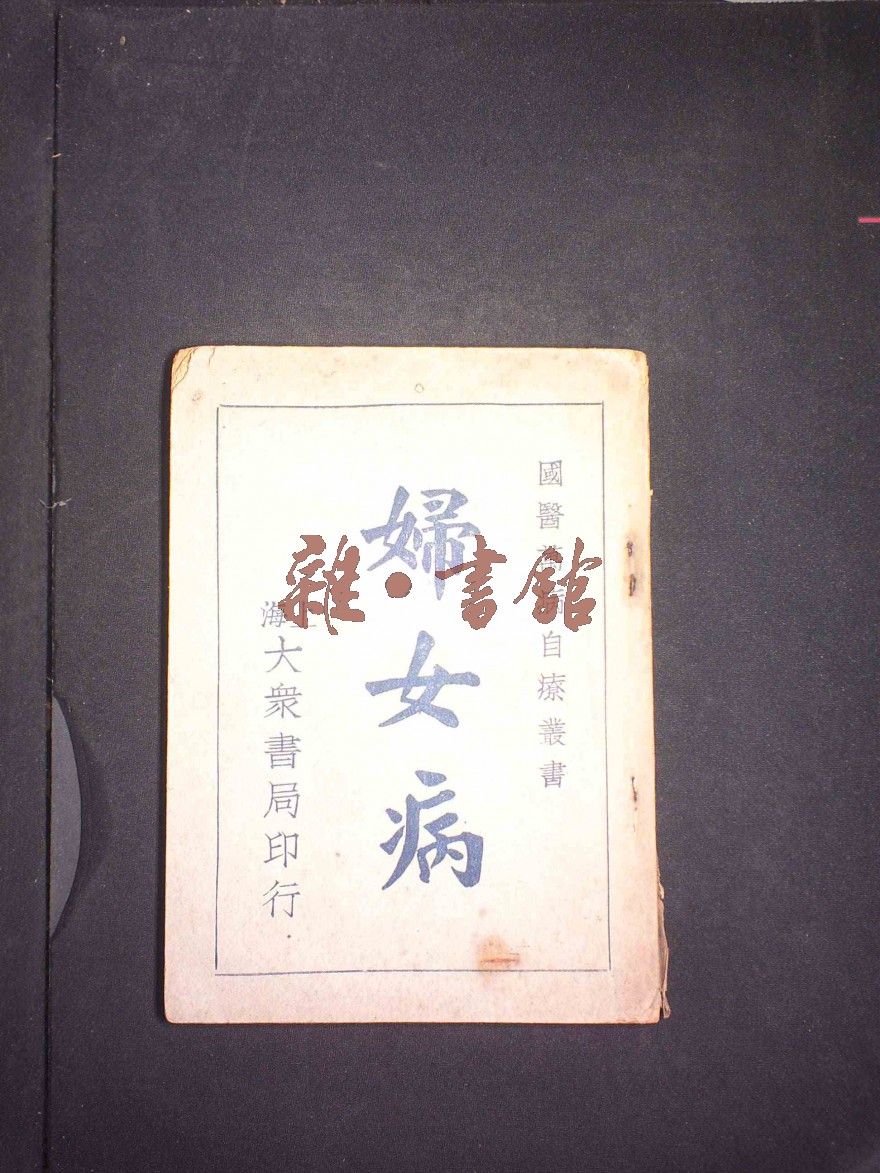 國醫萬病自療叢書
婦女病
上海大衆書局印行
雜·書館